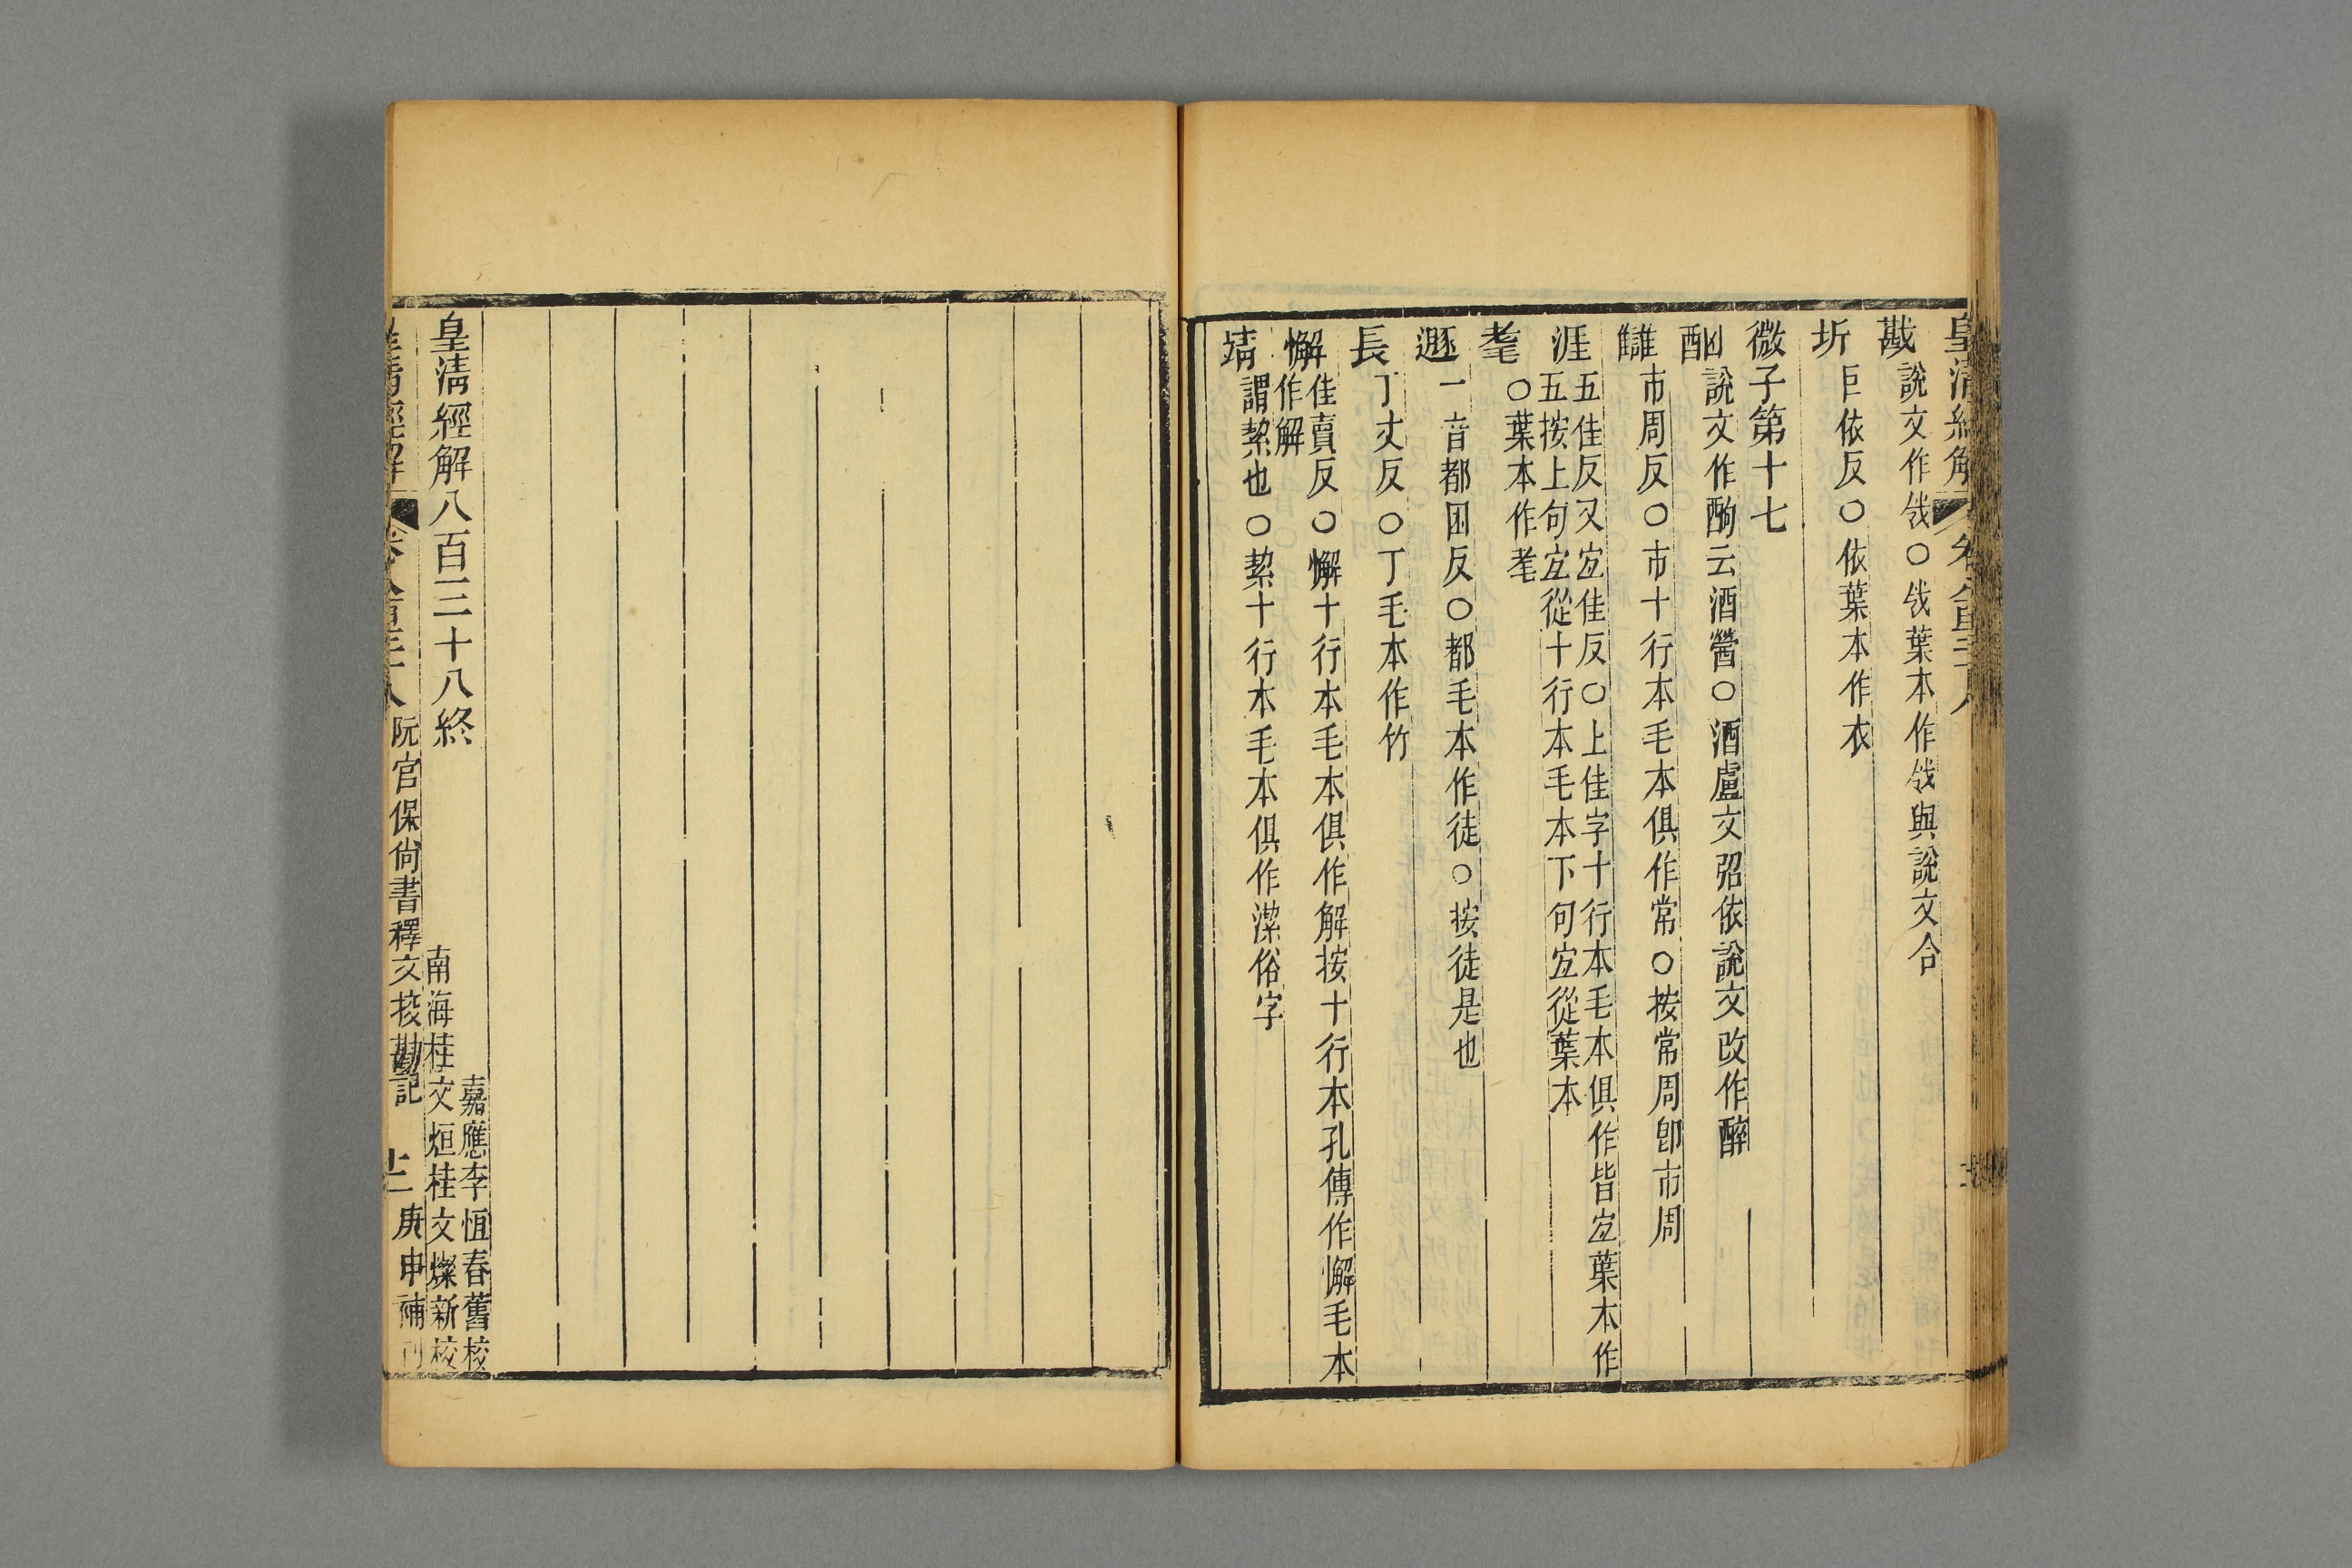 皇清經解 卷八百三十八
戡 說文作𢦟○𢦟葉本作𢦟與說文合
圻 巨依反○依葉本作衣
微子第十七
酗 說文作酌云酒醟○酒盧文弨依說文改作醉
讎 市周反○市十行本毛本俱作常○按常周卽市周
涯 五佳反又宜佳反○上佳字十行本毛本俱作皆宜葉本作
五按上句宜從十行本毛本下句宜從葉本
耄 ○葉本作耄
遯 一音都困反○都毛本作徒○按徒是也
長 丁丈反○丁毛本作竹
懈 佳賣反○懈十行本毛本俱作解按十行本孔傳作懈毛本
作解
靖 謂絜也○絜十行本毛本俱作潔俗字
嘉應李恆春舊校
皇清經解八百三十八終 南海桂文烜桂文燦新校
皇清經解 卷八百三十八 阮宮保尙書釋文挍勘記 十二 庚申補刊